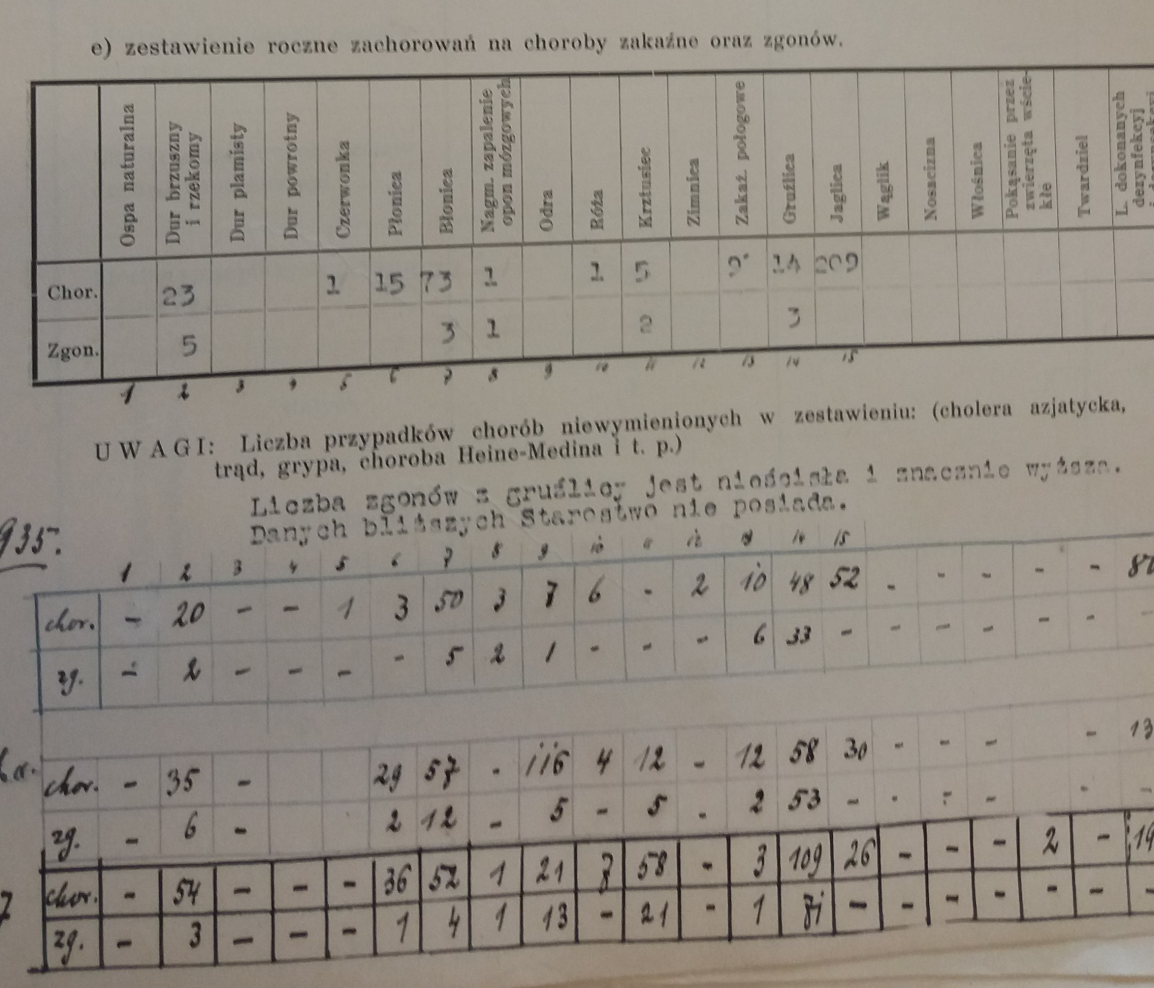 e) zestawienie roczne zachorowań na choroby zakaźne oraz zgonów.
Ospa naturalna
Dur brzuszny
i rzekomy
Dur plamisty
Dur powrotny
Czerwonka
Płonica
Błonica
Nagm. zapalenie
opon mózgowych
Odra
Róża
Krztusiec
Zimnica
Zakaź. połogowe
Gruźlica
Jaglica
Wąglik
Nosacizna
Włośnica
Pokąsanie przez
zwierzęta wście-
kłe
Twardziel
L. dokonanych
dezynfekcyj
Chor. 23 1 15 73 1 1 5 14 209
Zgon. 5 3 1 2 3
1 2 3 4 5 6 7 8 9 10 11 12 13 14 15
UWAGI: Liczba przypadków chorób niewymienionych w zestawieniu: (cholera azjatycka,
trąd, grypa, choroba Heine-Medina i t. p.)
Liczba zgonów z gruźlicy jest nieścisła i znacznie wyższa.
Danych bliższych Starostwo nie posiada.
935.
1 2 3 4 5 6 7 8 9 10 11 12 14 15
chor. - 20 - - 1 3 50 3 7 6 - 2 10 48 52 - - - - -
zg. - 2 - - - - 5 2 1 - - - 6 33 - - - - - -
chor. - 35 - 29 57 - 116 4 12 - 12 58 30 - - - -
zg. - 6 - 2 12 - 5 - 5 - 2 53 - - - - - -
chor. - 54 - - - 36 52 1 21 7 58 - 3 109 26 - - - 2 -
zg. - 3 - - - 1 4 1 13 - 21 - 1 71 - - - - - - -